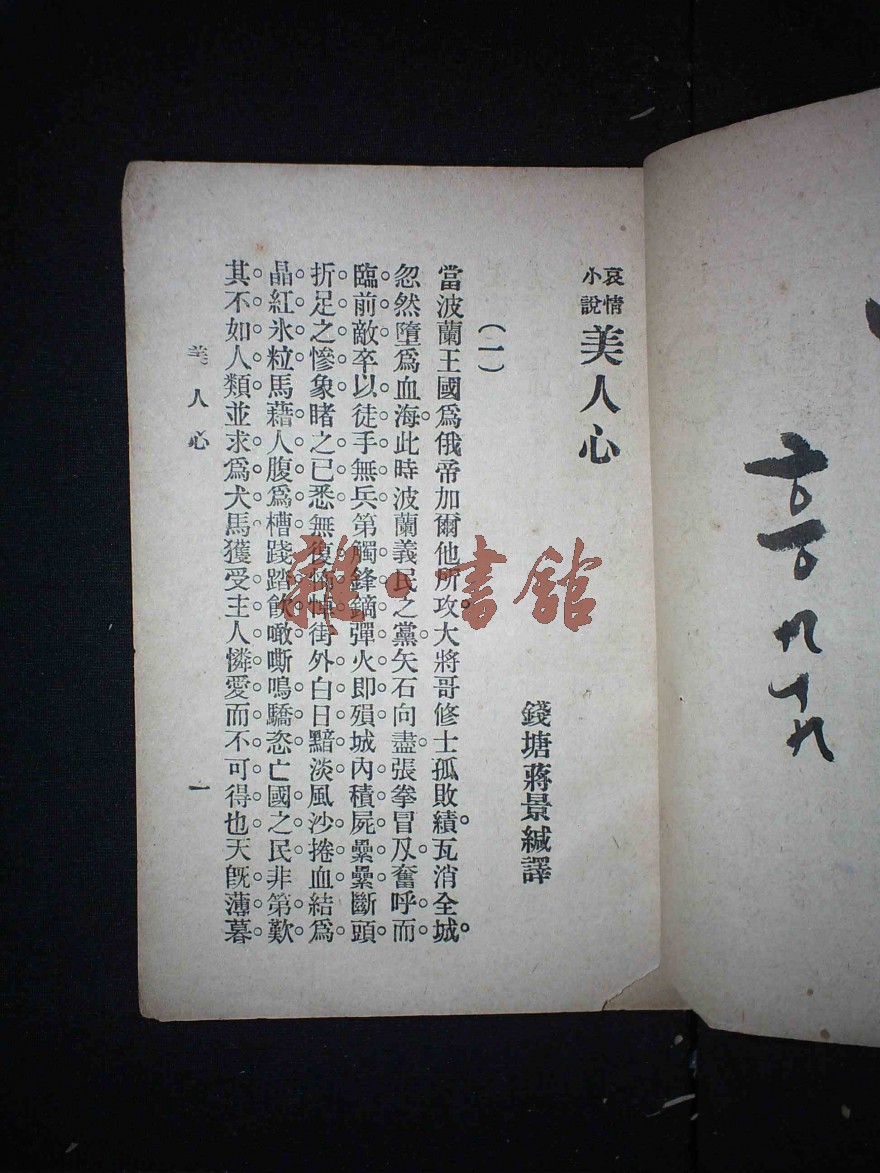 哀情小說 美人心
錢塘蔣景緘譯
(一)
當波蘭王國爲俄帝加爾他所攻大將哥修士孤敗績瓦消全城
忽然墮爲血海此時波蘭義民之黨矢石向盡張拳冒刄奮呼而
臨前敵卒以徒手無兵第觸鋒鏑彈火即殞城內積屍纍纍斷頭
折足之慘象睹之已悉無復 街外白日黯淡風沙捲血結爲
晶紅氷粒馬藉人腹爲槽踐踏飮噉嘶鳴驕恣亡國之民非第歎
其不如人類並求爲犬馬獲受主人憐愛而不可得也天旣薄暮
美人心 一
雜·書館